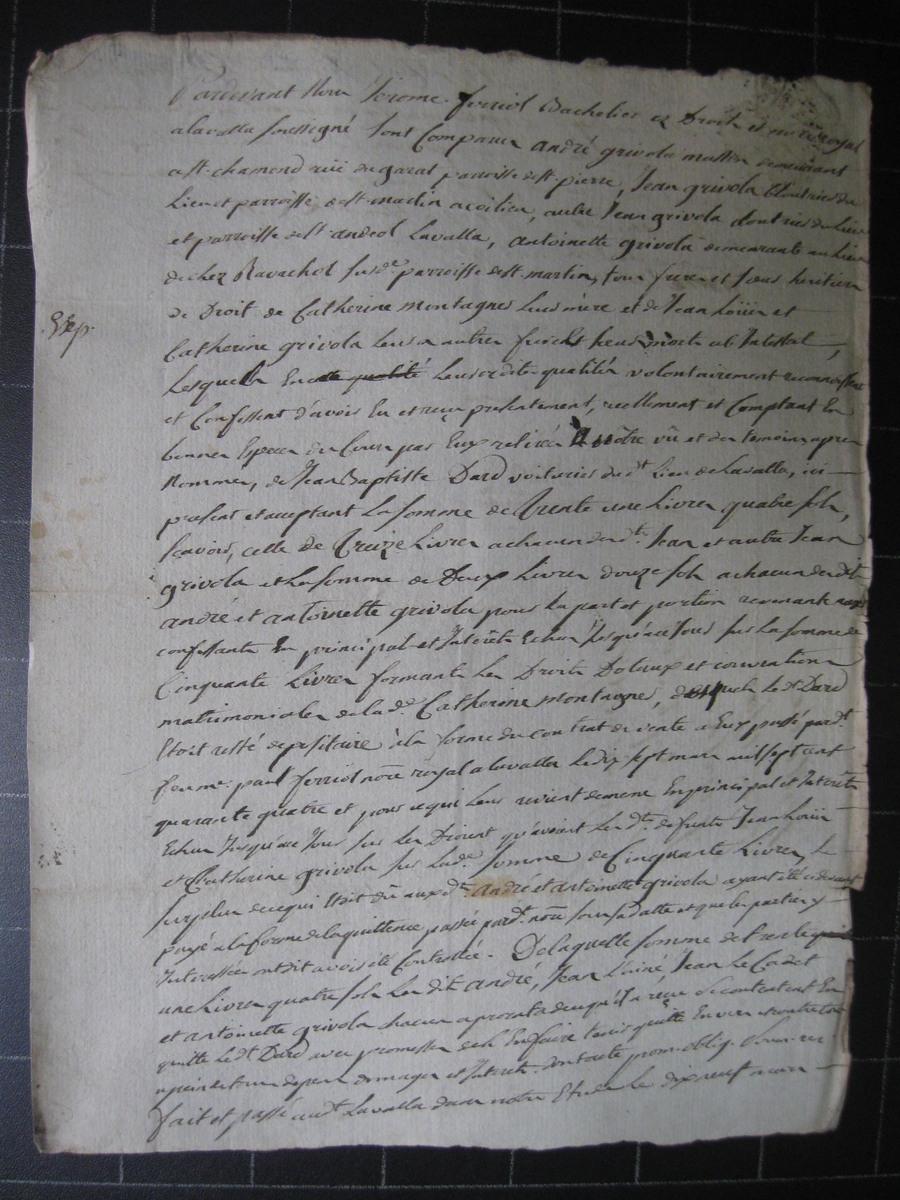 Pardevant Nous Jerome ferriol Bachelier ez Droit et no.re royal
alavalla soussigné sont Comparus andré grivola masson demeurant
a st. chamond rüe du garat parroisse de st. pierre, Jean grivola Cloutrier du
Lieu et parroisse de st. martin acoilieu, autre Jean grivola cloutrier du Lieu
et parroisse de st. andeol Lavalla, antoinette grivola demeurante au Lieu
de chez Ravachol susd.e parroisse de st. martin, tous freres et soeur heritiers
de Droit de Catherine montagner Leur mere et de Jean Loüis et
Catherine grivola Leurs autres morts ab Intestat,
Lesquels En cette qualité Leursdites qualités volontairement reconnoissent
et Confessent d'avoir Eu et reçu presentement, reellement et Comptant En
bonnes Especes du Cours par Eux retirées a nôtre vû et des temoins apres
Nommes, de Jean Baptiste Dard voiturier dud.t Lieu de Lavalla, ici
present et acceptant La somme de Trente une Livres quatre sols,
scavoir, celle de Treize Livres a chacun desd.ts Jean et autre Jean
grivola et La somme de Deux Livres douze sols a chacun desd.ts
andré et antoinette grivola pour La part et portion revenante auxd.
confessants En principal et Interêts Echus Jusqu'a ce Jour sur La somme de
Cinquante Livres formante Les Droits Dotaux et conventions
matrimoniales de lad.e Catherine montagner, desquels Led.t Dard
Etoit resté depositaire à la forme du contrat de vente a Eux passé pard.t
feu m.e paul ferriol no.re royal a lavalla Le dix sept mars mil sept cent
quarante quatre et pour ce qui Leur revient de meme En principal et Interêts
Echus Jusqu'a ce Jour sur Les Droits qu'avoient Lesd.ts defunts Jean Loüis
et Catherine grivola sur Lad.e somme de Cinquante Livres, Le
surplus de ce qui Etoit dû auxd.ts andré et antoinette grivola ayant été cidevant
payé a la forme de la quittance passée pard.t no.us sous sa datte et que les parties y
Interessées ont dit avoir été Controllée. De laquelle somme de trente
une Livres quatre sols Les dits andré, Jean L'ainé, Jean Le Cadet
et antoinette grivola chacun a prorata de ce qu'il a reçu se contentent En
quitte Led.t Dard avec promesses de L'En faire tenir quitte Envers et contre tous
a peine de tous depens dommages et Interets. dont acte prom. oblig. soum. ren.
fait et passé aud.t Lavalla dans notre Etude Le dix neuf mars